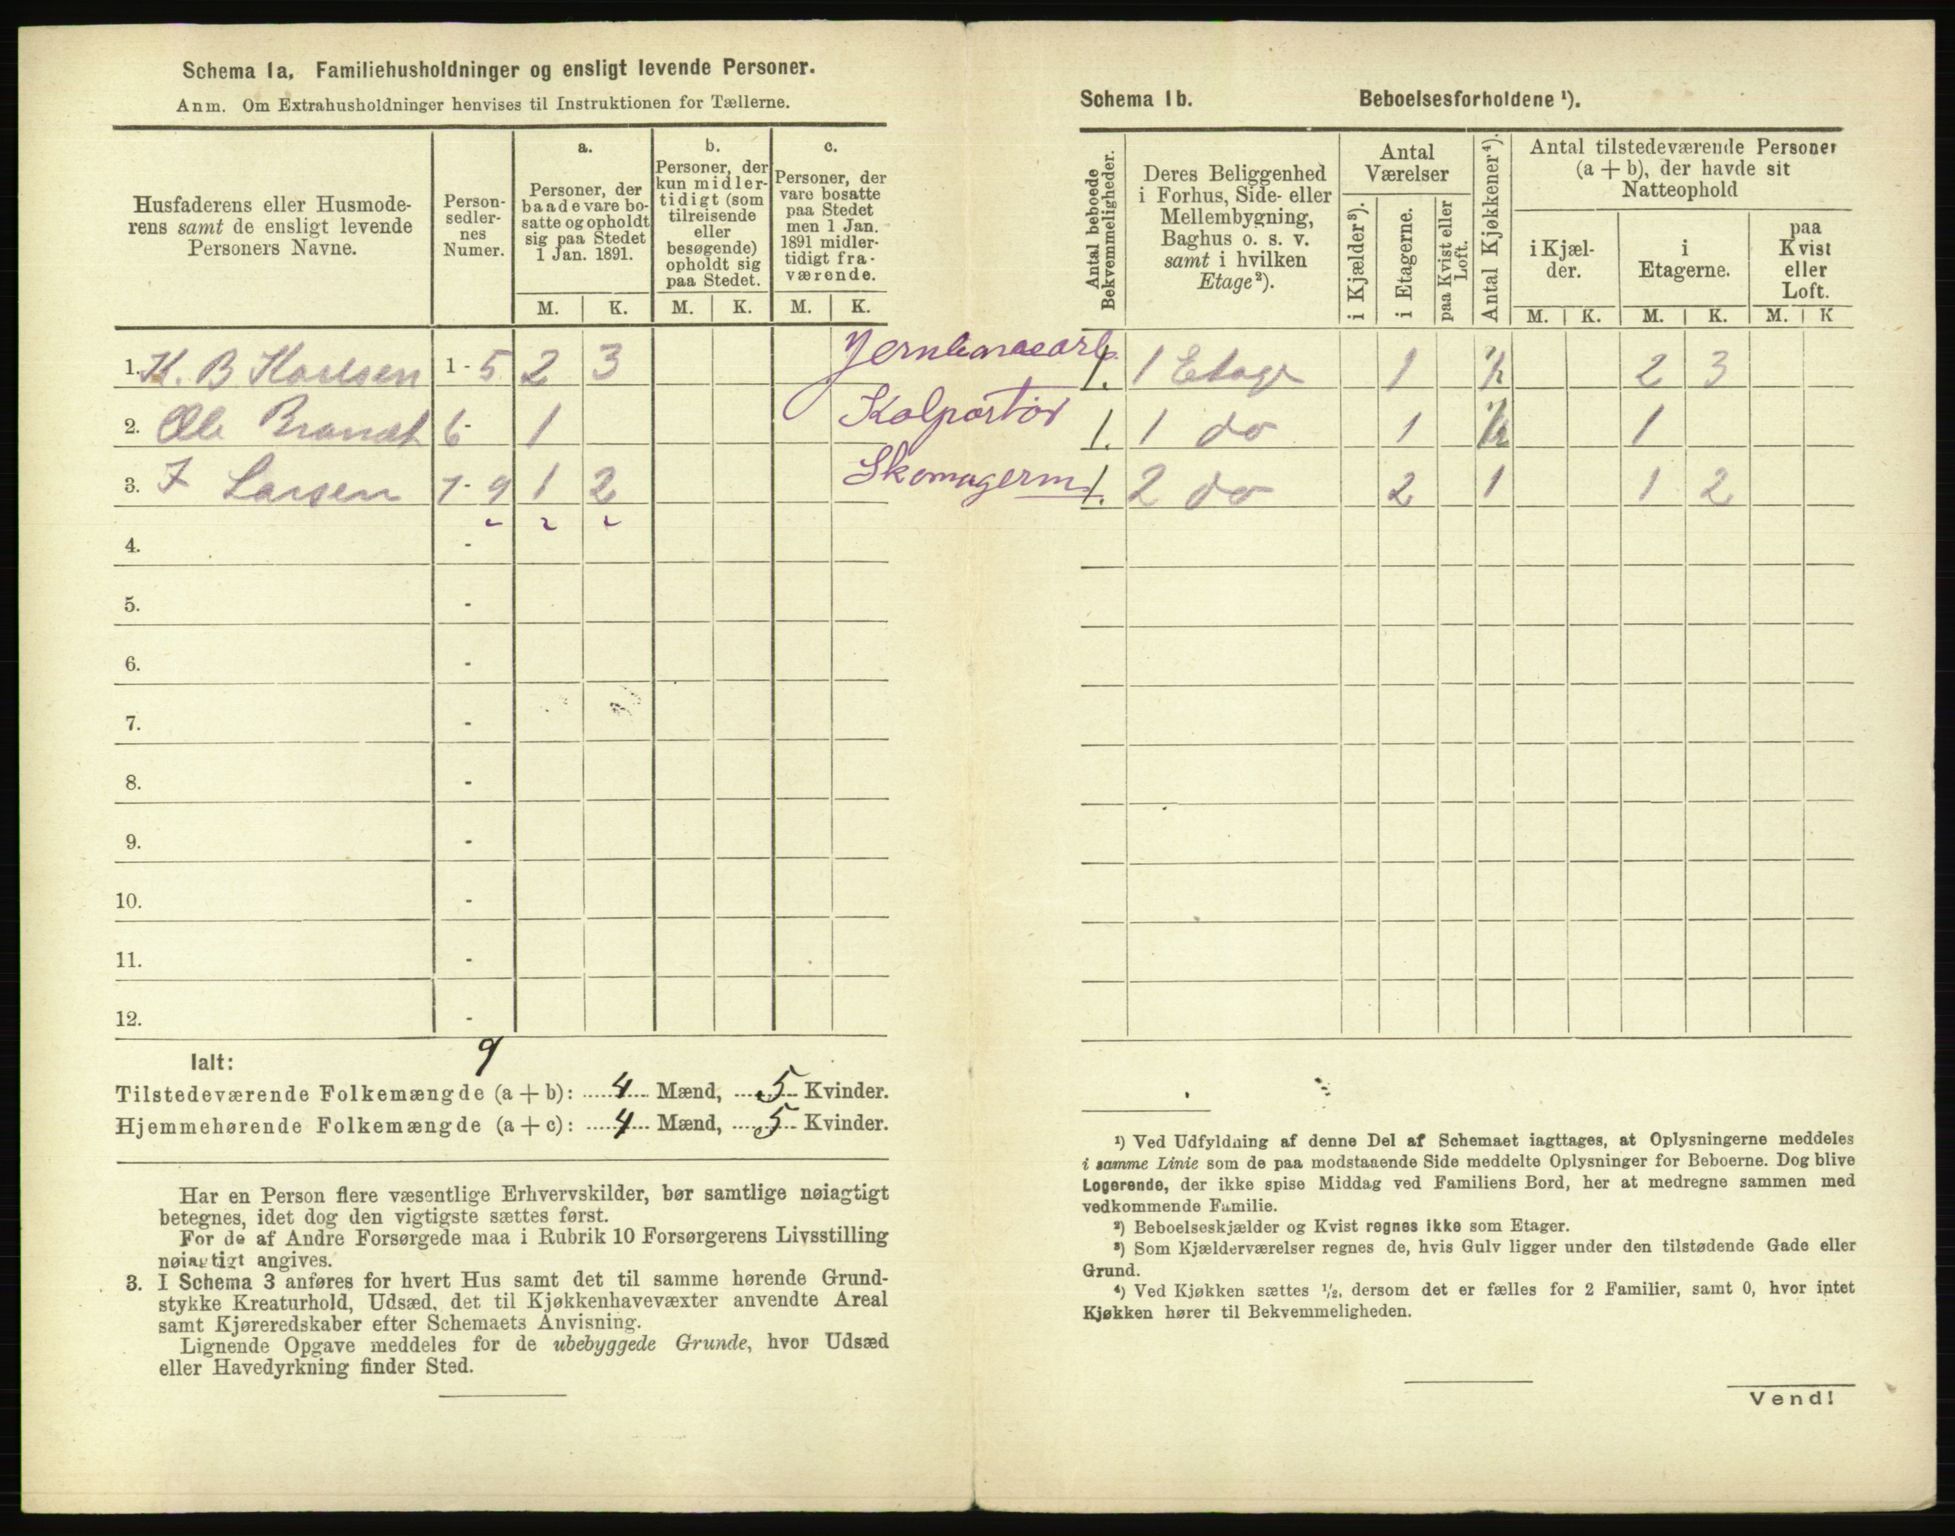 Schema 1a. Familiehusholdninger og ensligt levende Personer.
Anm. Om Extrahusholdninger henvises til Instruktionen for Tællerne.
Husfaderens eller Husmode-
rens samt de ensligt levende
Personers Navne.
Person-
sedler-
nes
Numer.
a.
Personer, der
baade vare bo-
satte og opholdt
sig paa Stedet
1 Jan. 1891.
b.
Personer, der
kun midler-
tidigt (som
tilreisende
eller
besøgende)
opholdt sig
paa Stedet.
c.
Personer, der
vare bosatte
paa Stedet
men 1 Jan.
1891 midler-
tidigt fra-
værende.
M. K. M. K. M. K.
1. K. B Karlsen 1-5 2 3 Jernbanearb.
2. Ole Brandt 6- 1 Kolportør
3. J Larsen 7-9 1 2 Skomagerm
4. -
5. -
6. -
7. -
8. -
9. -
10. -
11. -
12. -
Ialt: 9
Tilstedeværende Folkemængde (a + b): 4 Mænd, 5 Kvinder.
Hjemmehørende Folkemængde (a + c): 4 Mænd, 5 Kvinder.
Har en Person flere væsentlige Erhvervskilder, bør samtlige nøiagtigt
betegnes, idet dog den vigtigste sættes først.
For de af Andre Forsørgede maa i Rubrik 10 Forsørgerens Livsstilling
nøiagtigt angives.
3. I Schema 3 anføres for hvert Hus samt det til samme hørende Grund-
stykke Kreaturhold, Udsæd, det til Kjøkkenhavevæxter anvendte Areal
samt Kjøreredskaber efter Schemaets Anvisning.
Lignende Opgave meddeles for de ubebyggede Grunde, hvor Udsæd
eller Havedyrkning finder Sted.
Schema 1b. Beboelsesforholdene ¹).
Antal beboede
Bekvemmeligheder.
Deres Beliggenhed
i Forhus, Side- eller
Mellembygning,
Baghus o. s. v.
samt i hvilken
Etage²).
Antal
Værelser
i Kjælder³).
i Etagerne.
paa Kvist eller
Loft.
Antal Kjøkkener⁴).
Antal tilstedeværende Personer
(a + b), der havde sit
Natteophold
i Kjæl-
der.
i
Etagerne.
paa
Kvist
eller
Loft.
M. K. M. K. M. K
1. 1 Etage 1 ½ 2 3
1. 1 do 1 ½ 1
1. 2 do 2 1 1 2
¹) Ved Udfyldning af denne Del af Schemaet iagttages, at Oplysningerne meddeles
i samme Linie som de paa modstaaende Side meddelte Oplysninger for Beboerne. Dog blive
Logerende, der ikke spise Middag ved Familiens Bord, her at medregne sammen med
vedkommende Familie.
²) Beboelseskjælder og Kvist regnes ikke som Etager.
³) Som Kjælderværelser regnes de, hvis Gulv ligger under den tilstødende Gade eller
Grund.
⁴) Ved Kjøkken sættes ½, dersom det er fælles for 2 Familier, samt 0, hvor intet
Kjøkken hører til Bekvemmeligheden.
Vend!